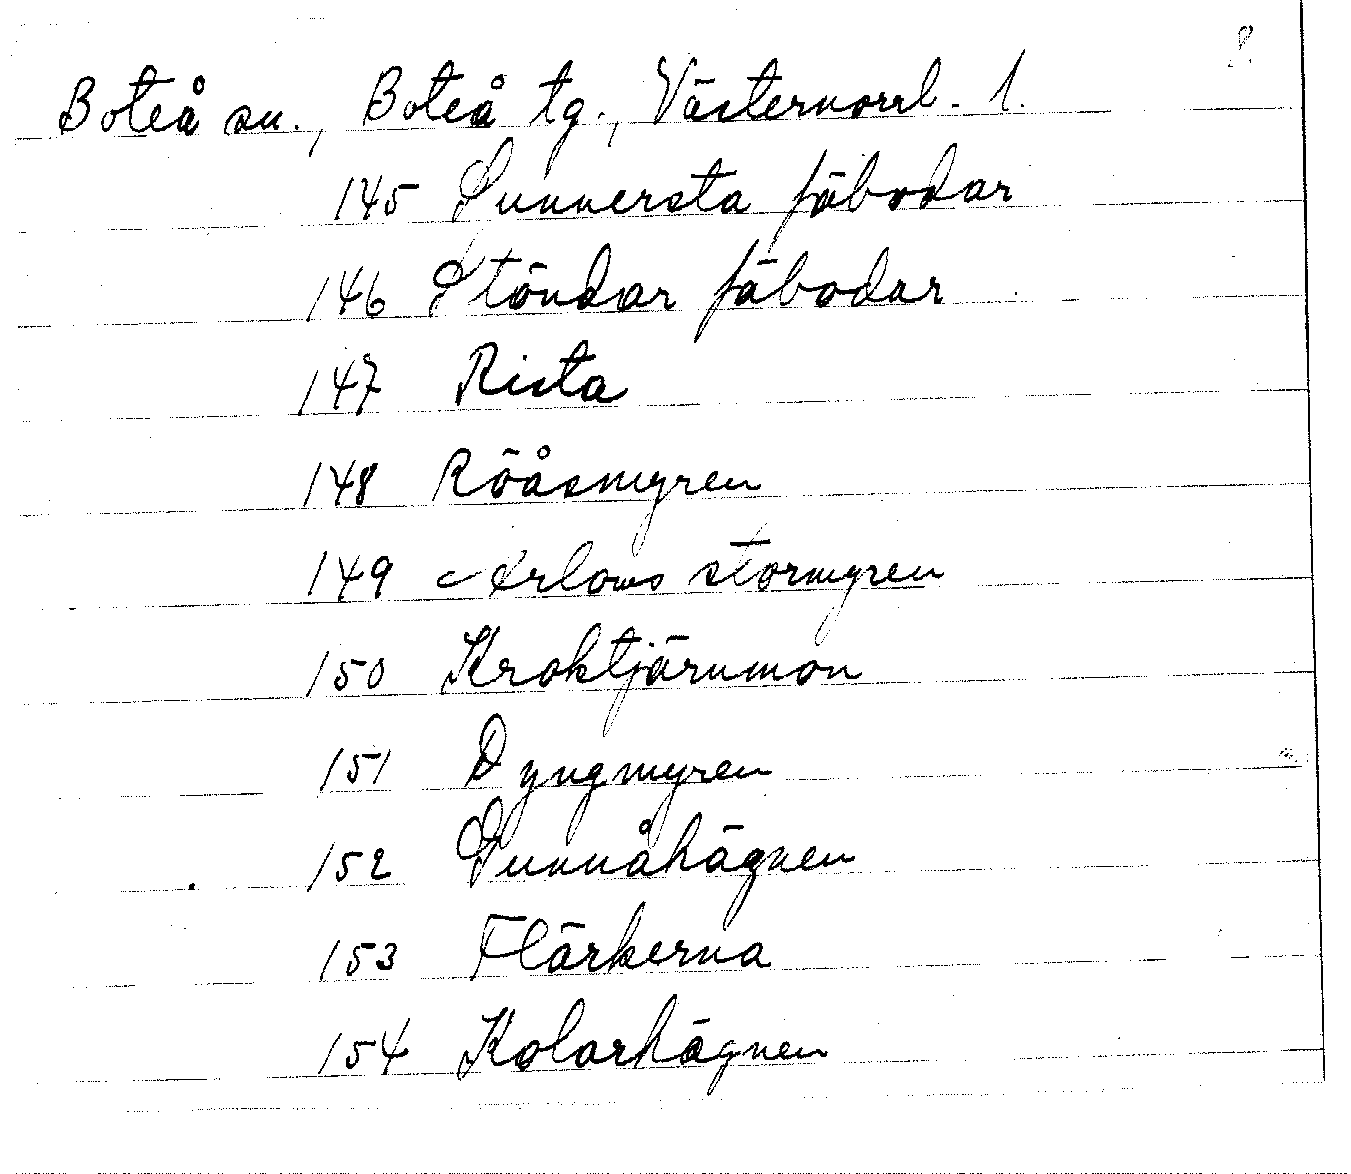 8.
Boteå sn., Boteå tg., Västernorrl. l.
145 Sunnersta fäbodar
146 Ständar fäbodar
147 Rista
148 Röåsmyren
149 stormyren
150 Kroktjärnmon
151 Dyngmyren
152 Sunnåhägnen
153 Flärkerna
154 Kolarhägnen